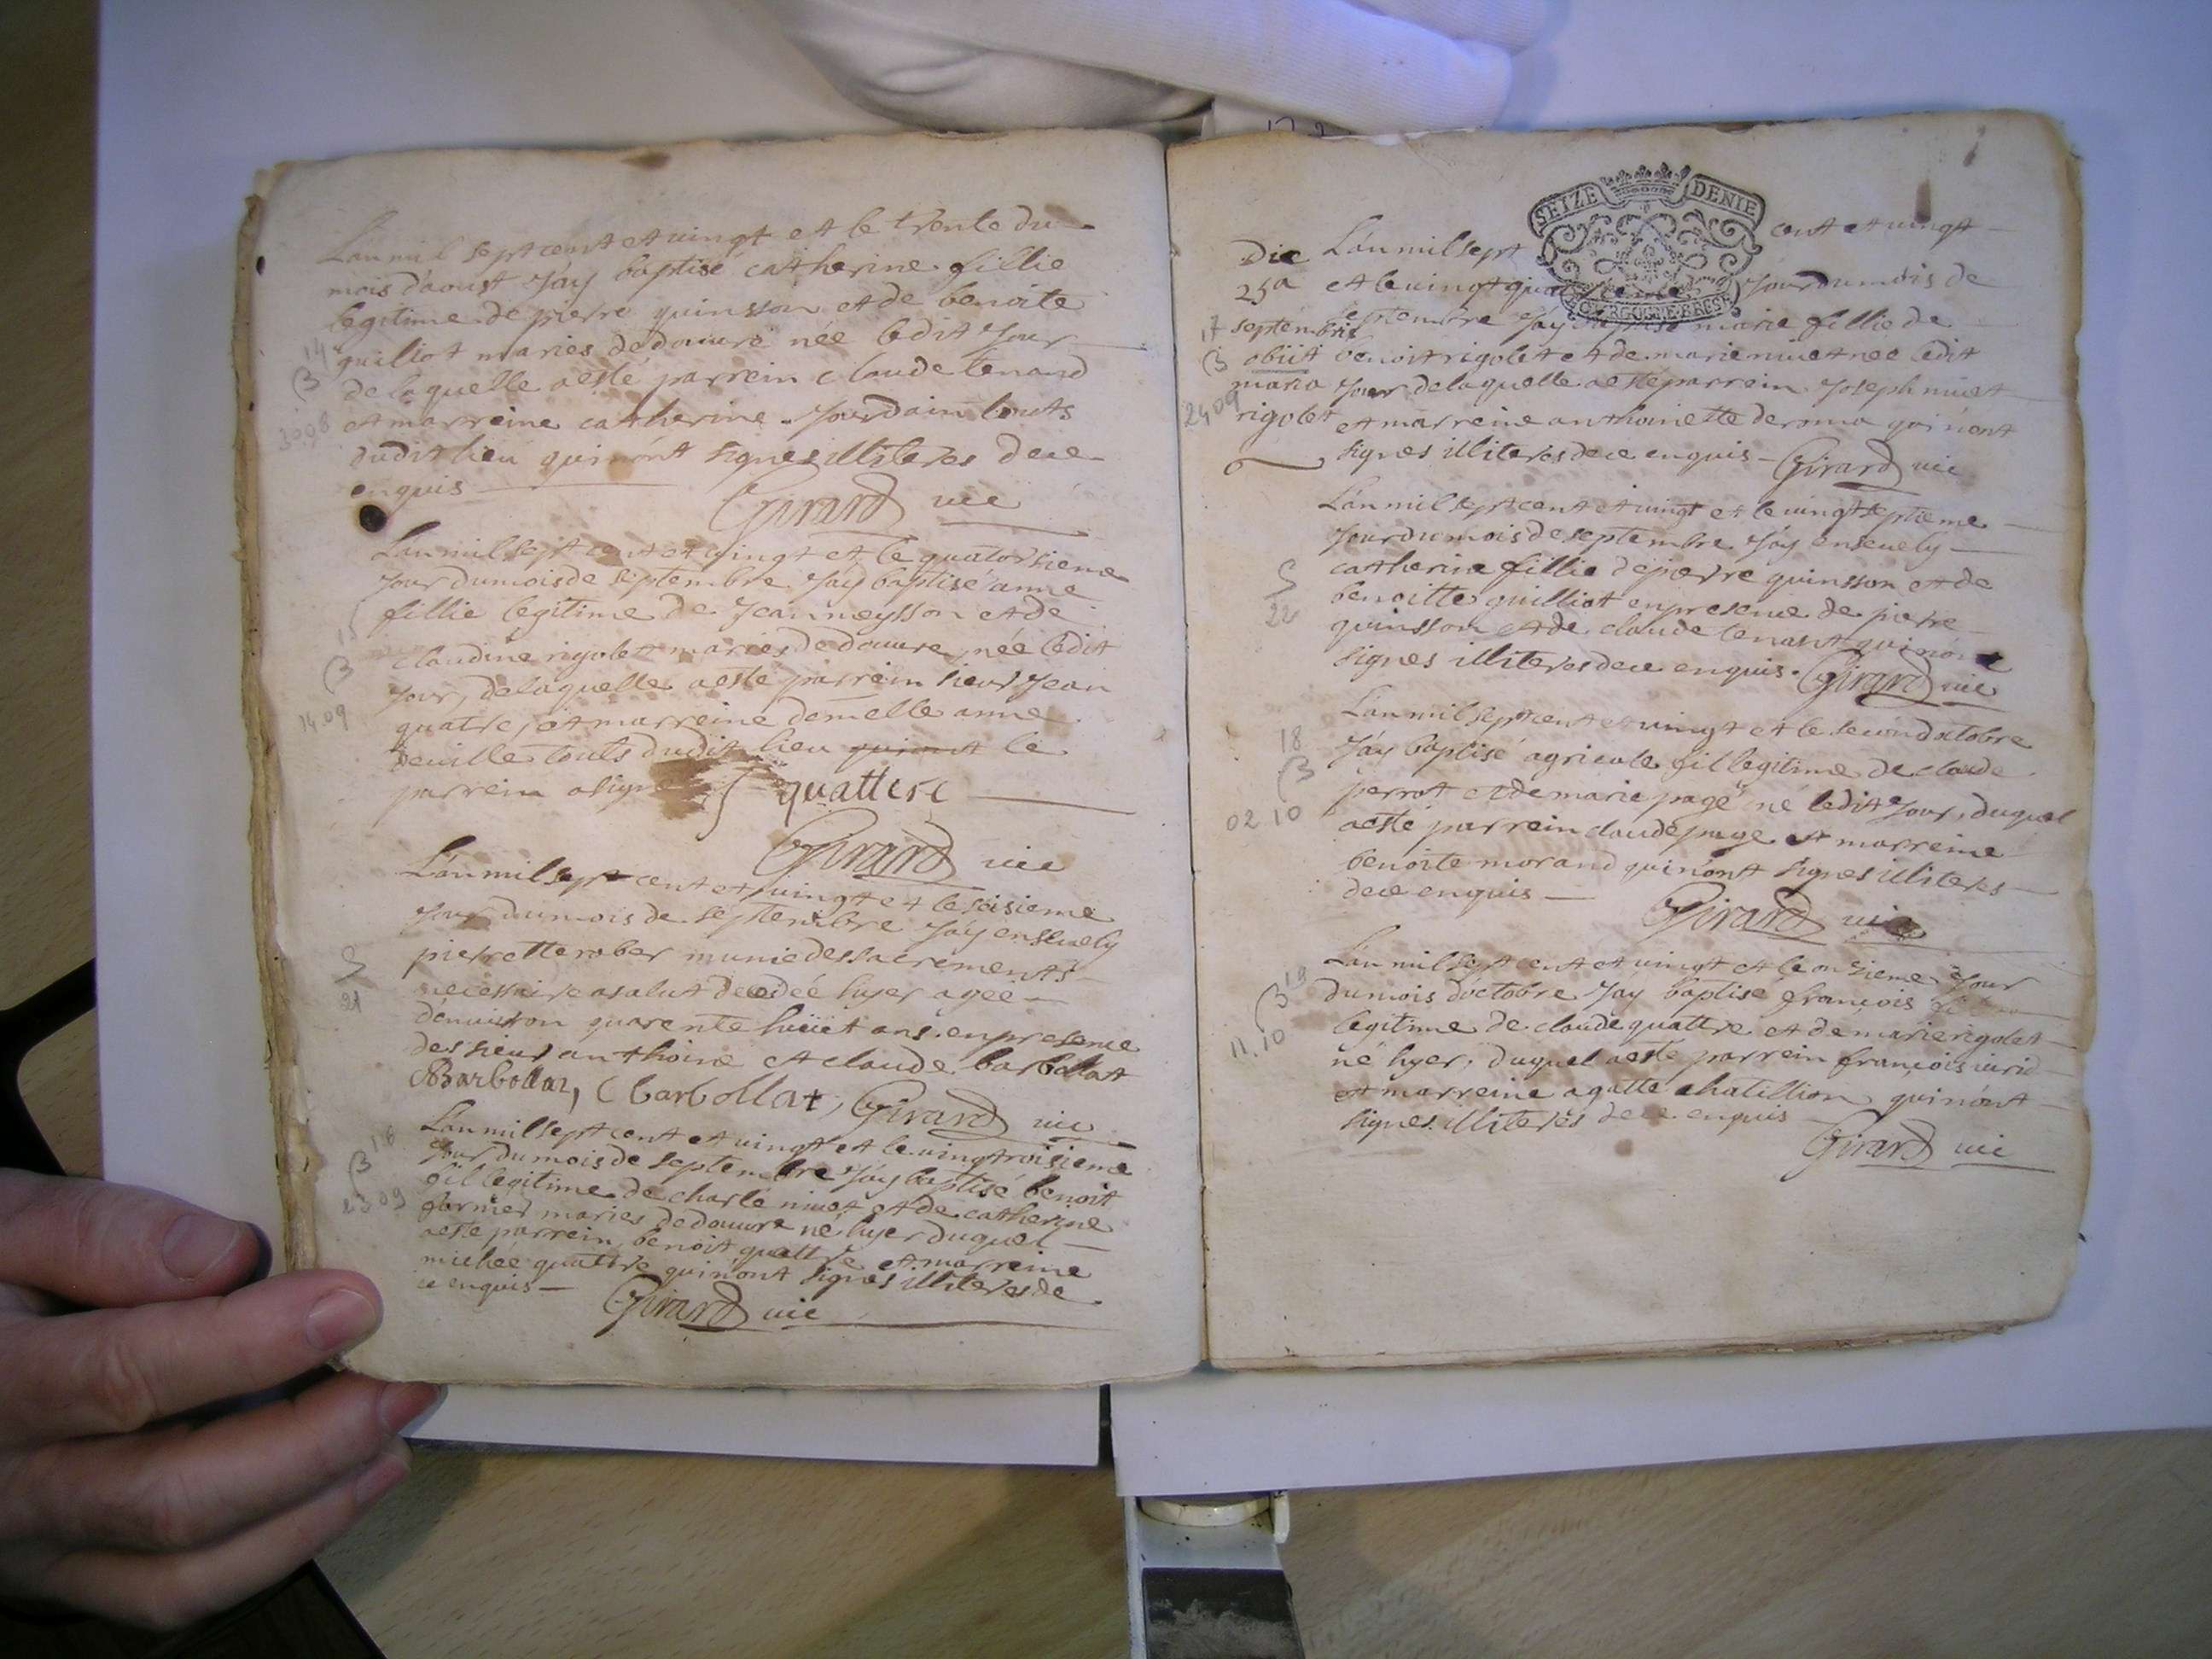 L'an mil sept cent et vingt et le trente du
mois d'aoust J'ay baptisé catherine fillie
legitime de pierre quinsson et de benoite
guilliot maries de douure née ledit Jour
de laquelle a esté parrein claude tenand
et marreine catherine Jourdain touts
dudit lieu qui n'ont signes illiteres de ce
enquis
Girard vic
14
B
30.08
L'an mil sept cent et vingt et le quatorsieme
Jour du mois de septembre J'ay baptisé anne
fillie legitime de Jean neysson et de
claudine rigolet maries de douure, née ledit
Jour, de laquelle a esté parrein sieur Jean
quatre, et marreine demelle anne
touts dudit lieu qui n'ont le
parrein a signé J quattere
Girard vic
15
B
14.09
L'an mil sept cent et vingt et le seisieme
Jour du mois de septembre J'ay enseuely
pierrette rober munie des sacrements
necessaire a salut decedée hyer agée
d'enuiron quarente huict ans en presence
des sieur anthoine et claude barbollat
ABarbollat, CBarbollat, Girard vic
S
21
L'an mil sept cent et vingt et le vingtroisieme
Jour du mois de septembre J'ay baptisé benoit
fil legitime de charle niuet et de catherine
garnier maries de douure né hyer duquel
a esté parrein benoit quattre et marreine
michée quattre qui n'ont signes illiteres de
ce enquis
Girard vic
16
B
23.09
SEIZE DENIE
BOURGOGNE BRESSE
L'an mil sept cent et vingt
et le vingt quatrieme Jour du mois de
septembre J'ay baptisé marie fillie de
benoit rigolet et de marie niuet née ledit
Jour de laquelle a esté parrein Joseph niuet
et marreine anthoinette deroma qui n'ont
signes illiteres de ce enquis Girard vic
Die
25a
septembris
obiit
maria
rigolet
17
B
24.09
L'an mil sept cent et vingt et le vingt septieme
Jour du mois de septembre J'ay enseuely
catherine fillie de pierre quinsson et de
benoitte guilliot en presence de pierre
quinsson et de claude tenant qui n'ont
signes illiteres de ce enquis. Girard vic
S
22
L'an mil sept cent et vingt et le second octobre
J'ay baptisé agricole fil legitime de claude
perrot et de marie page né ledit Jour, duquel
a esté parrein claude page et marreine
benoite morand qui n'ont signes illiteres
de ce enquis
Girard vic
18
B
02.10
L'an mil sept cent et vingt et le onsieme Jour
du mois d'octobre J'ay baptisé françois fil
legitime de claude quattre et de marie rigolet
né hyer, duquel a esté parrein françois
et marreine agatte chatillion qui n'ont
signes illiteres de ce enquis
Girard vic
19
B
11.10